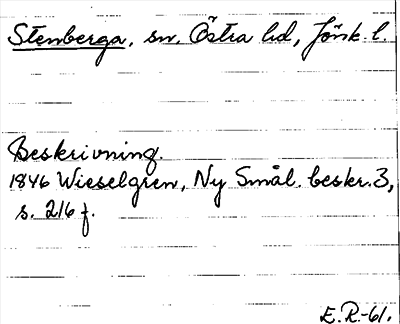 Stenberga, sn. Östra hd, Jönk. l.
Beskrivning.
1846 Wieselgren, Ny Smål. beskr. 3,
s. 216 f.
E.R.-61.